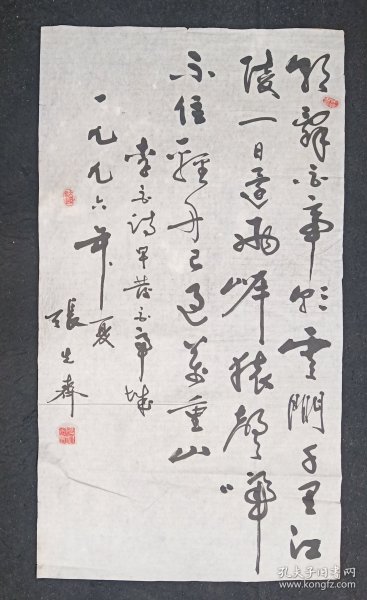 朝辭白帝彩雲間千里江
陵一日還兩岸猿聲啼
不住輕舟已過萬重山
李白詩早發白帝城
一九九六年夏
張
孔夫子旧书网
book.kongfz.com